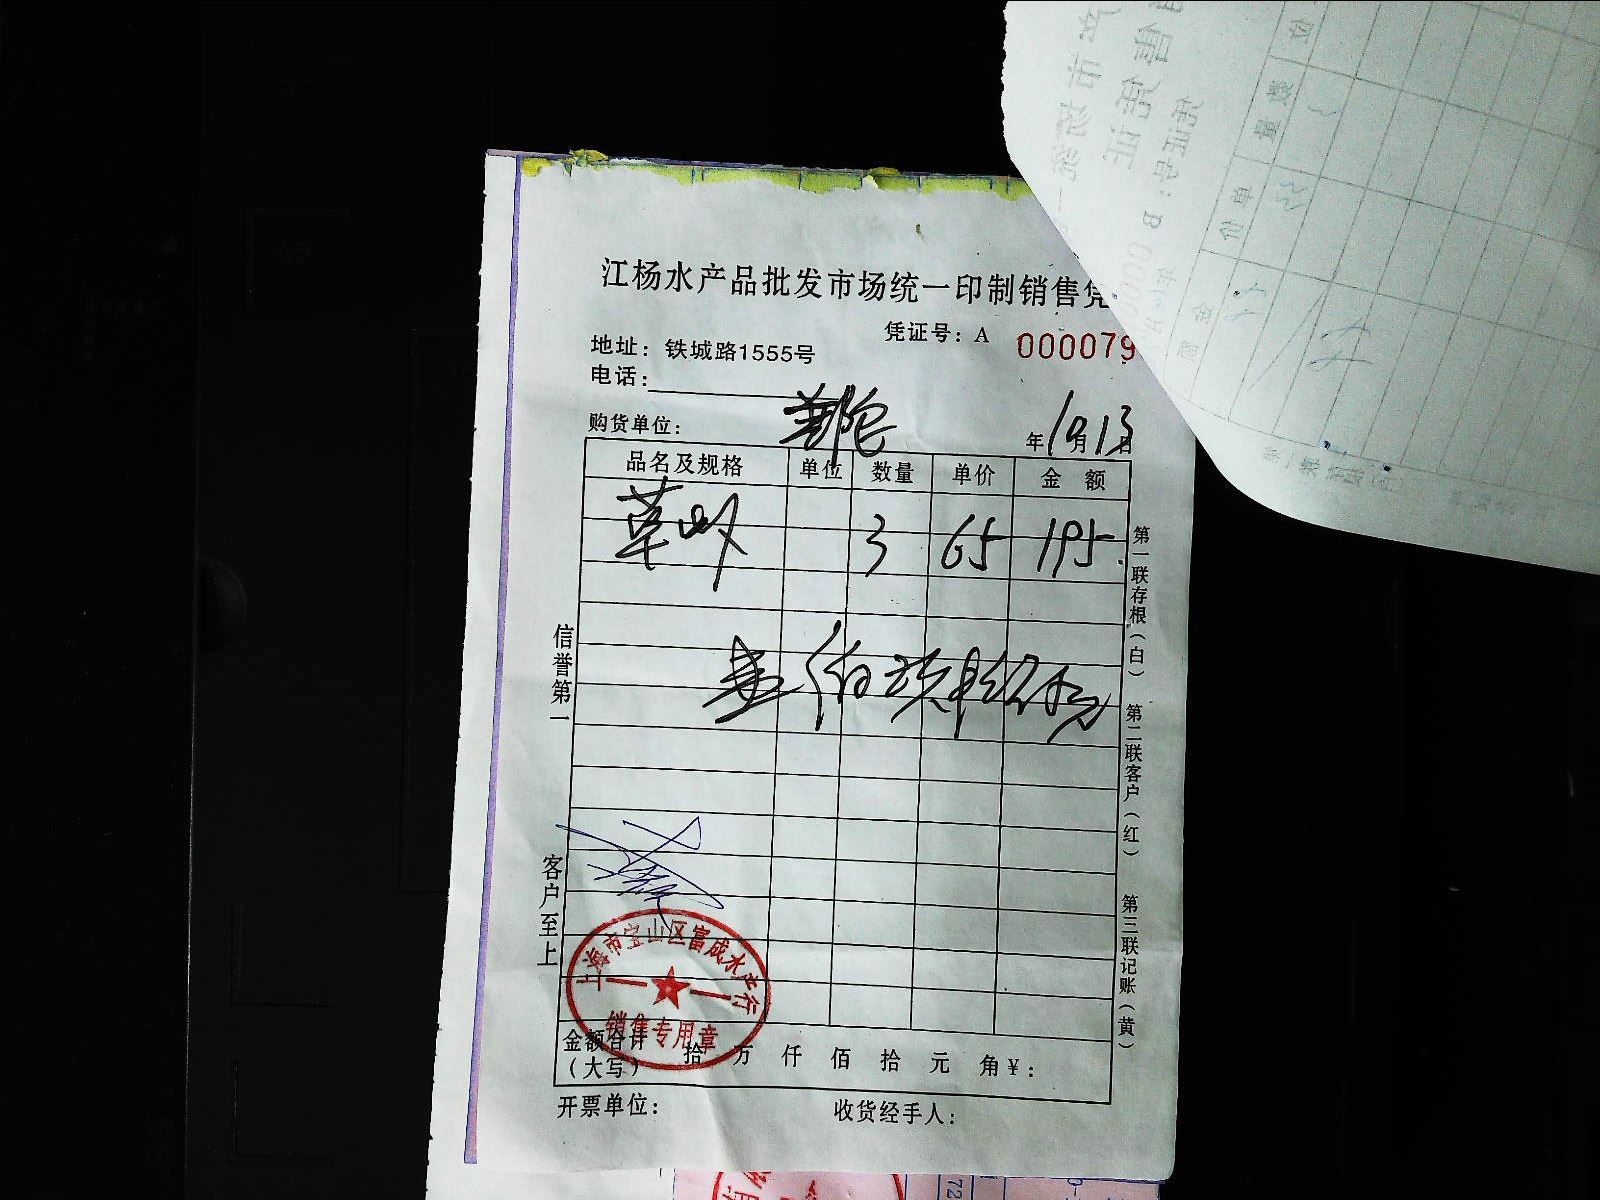 江杨水产品批发市场统一印制销售凭
凭证号：A 000079
地址：铁城路1555号
电话：
购货单位：
年10月13日
品名及规格 单位 数量 单价 金 额
草虾 3 65 195
壹佰玖拾伍元
信誉第一
客户至上
第一联存根（白）
第二联客户（红）
第三联记账（黄）
上海市宝山区富成水产行
销售专用章
金额合计
（大写） 拾 万 仟 佰 拾 元 角￥：
开票单位： 收货经手人：
凭证号：B
量 数
单价
金 额
72